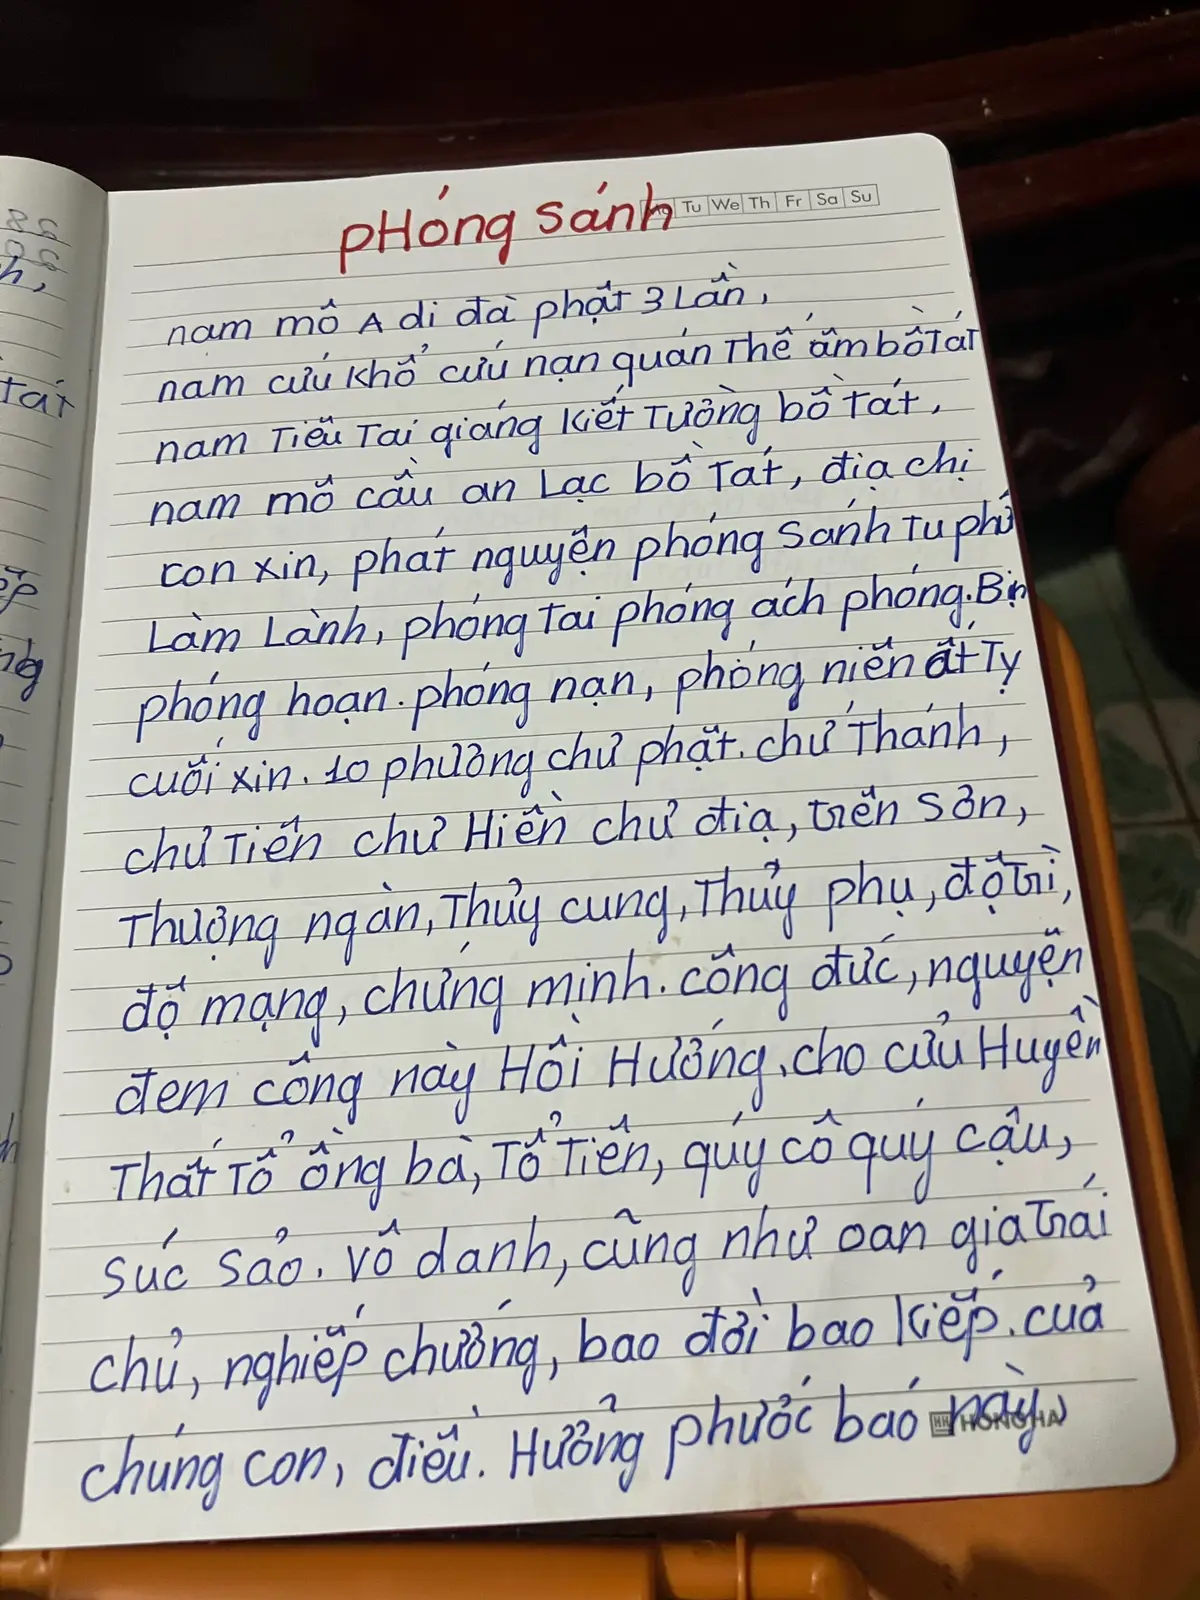 pHóng sánh
Mo Tu We Th Fr Sa Su
nam mô A di đà phật 3 Lần,
nam cứu khổ cứu nạn quán Thế âm bồ Tát
nam Tiêu Tai giáng kiết Tường bồ Tát,
nam mô cầu an Lạc bồ Tát, địa chị
con xin, phát nguyện phóng Sánh Tu phú
Làm Lành, phóng Tai phóng ách phóng. Bịn
phóng hoạn. phóng nạn, phóng niên ất Tỵ
cuối xin. 10 phương chư phật. chư Thánh,
chư Tiên chư Hiền chư địa, trên Sơn,
Thượng ngàn, Thủy cung, Thủy phụ, độ trì,
độ mạng, chứng mịnh. công đức, nguyện
đem công này Hồi Hướng, cho cửu Huyền
Thất Tổ ông bà, Tổ Tiên, quý cô quý cậu,
súc sảo. vô danh, cũng như oan gia trái
chủ, nghiếp chướng, bao đời bao kiếp. của
chúng con, điều. Hưởng phước báo này,
HH HONG HA
Tát